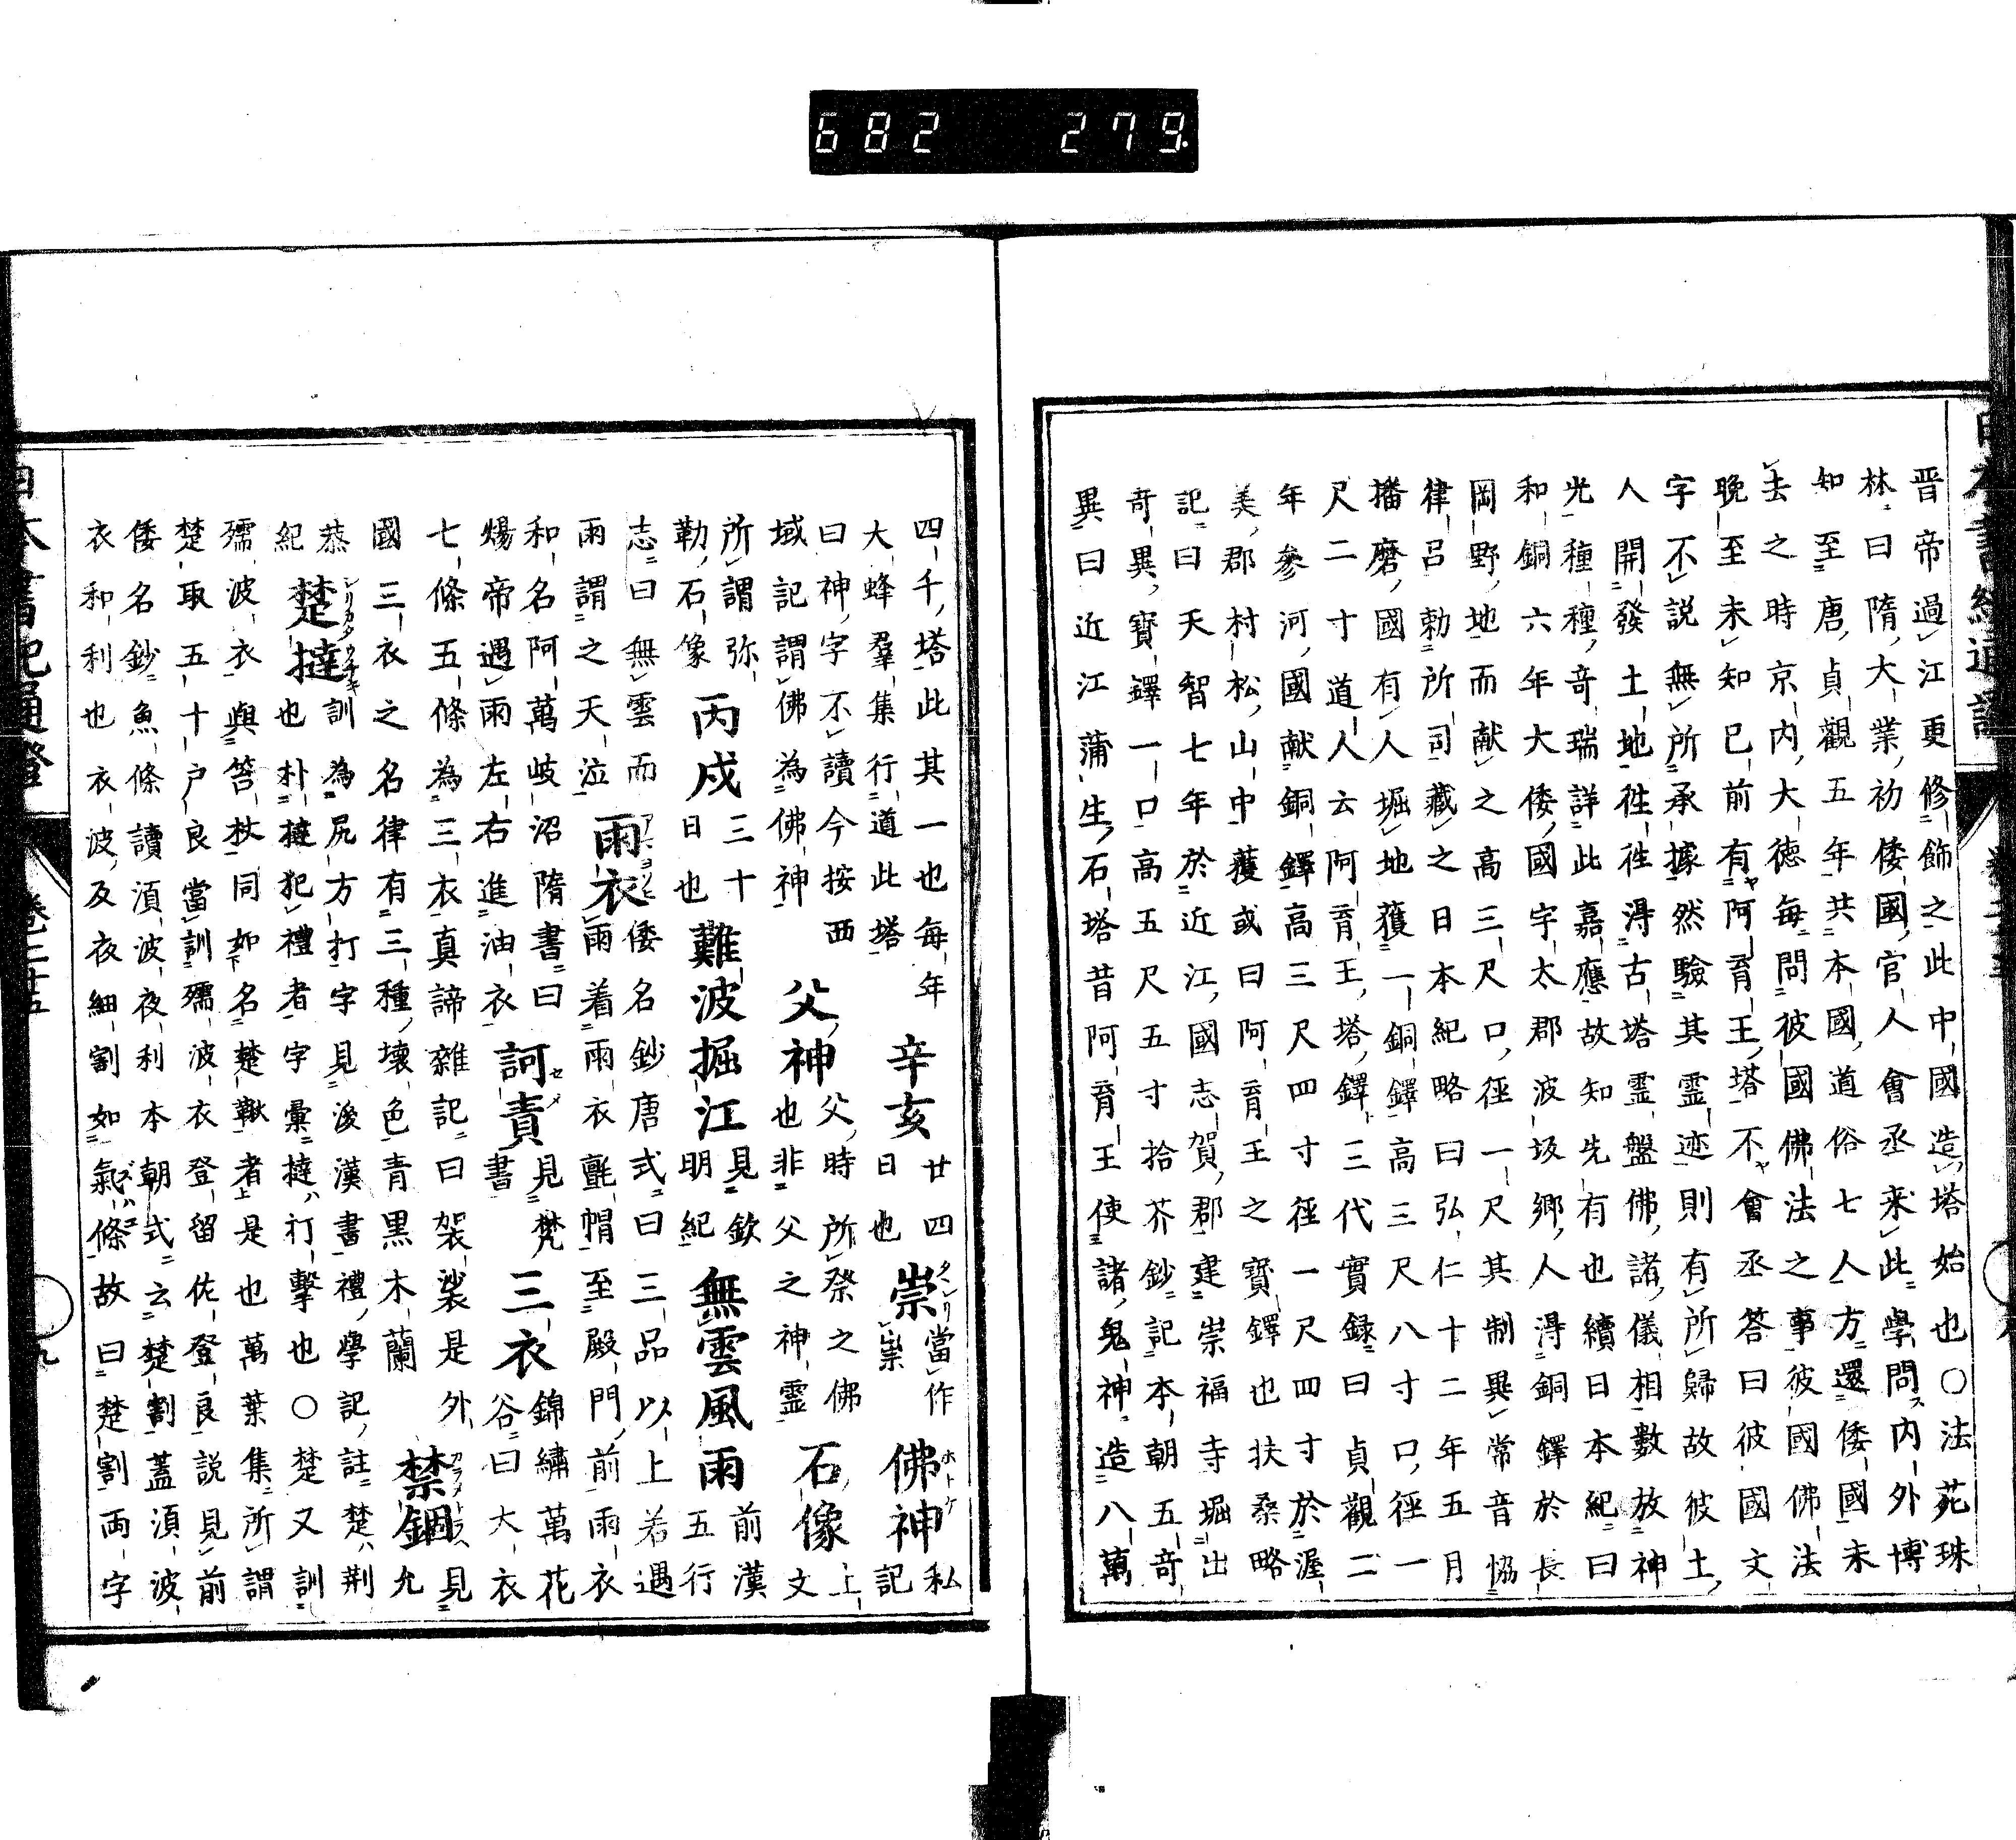 682 279
晋帝過江更修飾之此中國造塔始也○法苑珠
林曰隋大業初倭國官人會丞来此學問内外博
知至唐貞觀五年共本國道俗七人方還倭國未
去之時京内大徳毎問彼國佛法之事彼國佛法
晩至未知已前有阿育王塔不會丞答曰彼國文
字不説無所承據然驗其霊迹則有所歸故彼土
人開發土地徃徃淂古塔霊盤佛諸儀相數放神
光種種竒瑞詳此嘉應故知先有也續日本紀曰
和銅六年大倭國宇太郡波坂郷人淂銅鐸於長
岡野地而献之髙三尺口徑一尺其制異常音協
律呂勅所司藏之日本紀略曰弘仁十二年五月
播磨國有人堀地獲一銅鐸高三尺八寸口徑一
尺二寸道人云阿育王塔鐸三代實録曰貞觀二
年參河國献銅鐸高三尺四寸徑一尺四寸於渥
美郡村松山中獲或曰阿育王之寳鐸也扶桑略
記曰天智七年於近江國志賀郡建崇福寺堀出
竒異寳鐸一口高五尺五寸拾芥鈔記本朝五竒
異曰近江蒲生石塔昔阿育王使諸鬼神造八萬
四千塔此其一也毎年
大蜂羣集行道此塔
辛亥
廿四
日也
崇
當作
祟
佛神
私記
曰神字不讀今按西
域記謂佛為佛神
父神
父時所祭之佛
也非父之神霊
石像
上文
所謂弥
勒石像
丙戌
三十
日也
難波掘江
見欽
明紀
無雲風雨
前漢
五行
志曰無雲而
雨謂之天泣
雨衣
倭名鈔唐式曰三品以上若遇
雨着雨衣氈帽至殿門前雨衣
和名阿萬岐沼隋書曰
煬帝遇雨左右進油衣
訶責
見梵
書
三衣
錦繡萬花
谷曰大衣
七條五條為三衣真諦雜記曰袈裟是外
國三衣之名律有三種壞色青黒木蘭
禁錮
見
允
恭
紀
楚撻
訓為尻方打字見漢書禮學記註楚荆
也朴撻犯禮者字彙撻打撃也○楚又訓
殕波衣與笞杖同如名楚鞦者是也萬葉集所謂
楚取五十戸良當訓殕波衣登留佐登良説見前
倭名鈔魚條讀湏波夜利本朝式云楚割蓋湏波
衣和利也衣波及夜細割如氣條故曰楚割両字
日本書紀通證
卷三十五
九